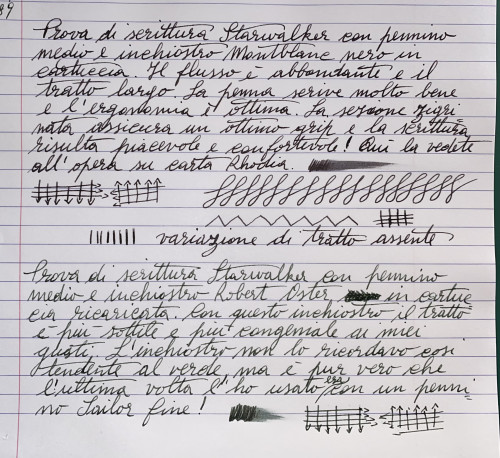 89
Prova di scrittura Starwalker con pennino
medio e inchiostro Montblanc nero in
cartuccia. Il flusso è abbondante e il
tratto largo. La penna scrive molto bene
e l'ergonomia è ottima. La sezione zigri
nata assicura un ottimo grip e la scrittura
risulta piacevole e confortevole! Qui la vedete
all'opera su carta Rhodia.
variazione di tratto assente
Prova di scrittura Starwalker con pennino
medio e inchiostro Robert Oster in cartuc
cia ricaricata. Con questo inchiostro il tratto
è più sottile e più congeniale ai miei
gusti. L'inchiostro non lo ricordavo così
tendente al verde, ma è pur vero che
l'ultima volta l'ho usato era con un penni
no Sailor fine!